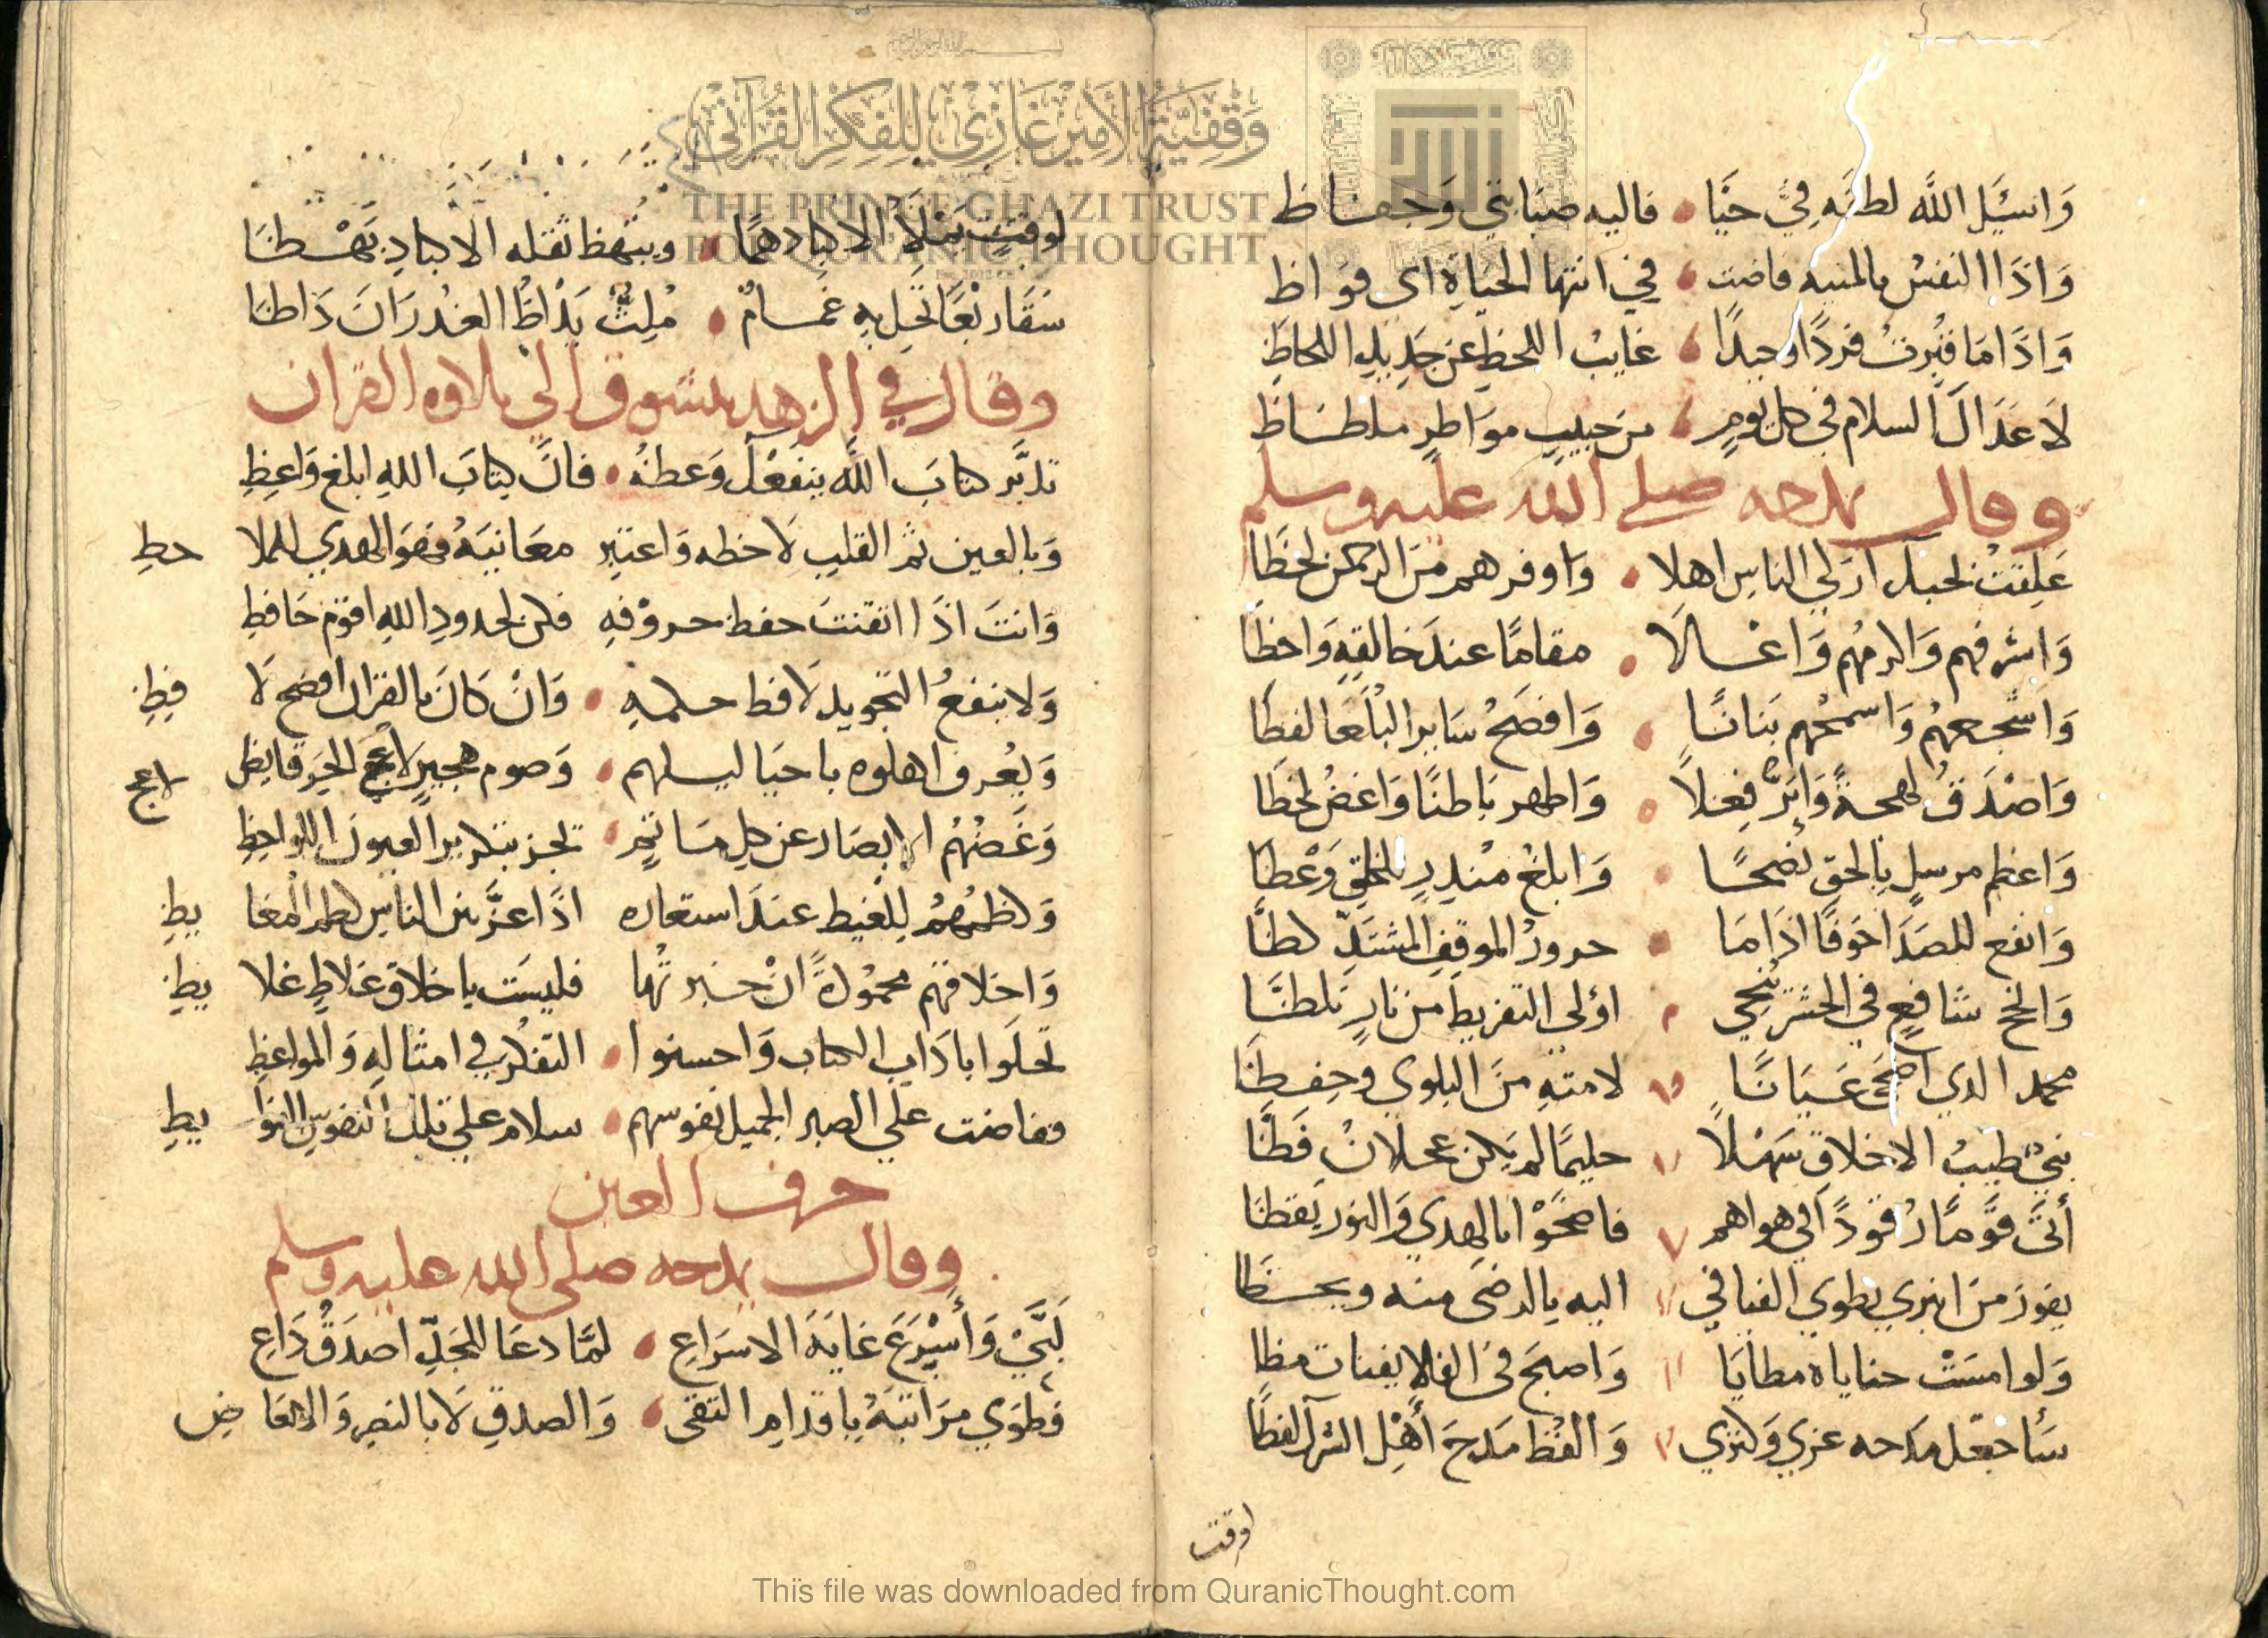 وَاسْئَلِ اللّٰه لطفه فِيَّ حَيًّا • فاليه صَبَابتي وَحفاظ
وَاذَا النفسُ بالمنيه فاضت • في انتها الحيَاةِ اى فوَاظ
وَاذَا مَا قُبِرتُ فردًا وحيدًا • غايبُ اللحظِ عن جَدِيدِ اللحاظِ
لاَ عَدَاكَ السلام في كل يومٍ • من حبيبٍ مواظِرٍ ملظاظِ
وقال يمدحه صلى الله عليه وسلم
عَلِقتُ بحبل ازكي الناسِ اهلا • واوفرهم منَ الرحمن لحظَا
وَاشرفهم وَاكرمُهم وَاعْلاَ • مقامًا عندَ خالقهِ وَاحظَا
وَاشجعهُم وَاسمحُهم بَنانًا • وَافصَحُ سَايرِ البُلَغَا لفظَا
وَاصْدَقُ لهجةً وَابَرّ فِعْلاً • وَاطهر بَاطنًا وَاغضُ لحظَا
وَاعظم مرسلٍ بالحقِ نصحًا • وَابلغُ منذِرٍ للخلقِ وَعْظَا
وَانفع للصَدَا حَوضًا اذَا مَا • حرورُ الموقفِ المشتدِّ لظَّا
وَانجح شافعٍ في الحشرِ يُنْجِي • اولي التفريطِ من نارٍ تلظَّا
محمد الذي اضحَى عَيَانًا • لامتهِ منَ البلوي وحِفظَا
نبيٌّ طيبُ الاخلاقِ سَهْلاً • حليمًا لم يَكن عجلانَ فَظَّا
أتَى قَوْمًا رُقودًا في هواهم • فاضحَوْا بالهدي وَالنور يَقظَا
يفوز من انبري يطوي الفيافي • اليه بالرضَى منه ويحظَا
وَلوا مسَتْ حناياه مطايَا • وَاصبحَ في الفلا يفتات مظا
سَأجعل مَدحه عزي وَكنزي • وَالفظ مَدحَ أَهْلِ الشركِ لفظَا
اوقت
لوقتٍ يَمْلأِ الاكبادَ همًّا • ويبهظ ثقله الاكبادِ بَهْظَا
سَقَا رَبْعًا تحُل بهِ غمامٌ • مُلِثٌّ يَدْاظُ الغدْرَانَ دَاظَا
وقال في الزهد يشوق الي تلاوه القران
تدبَّر كتابَ اللّٰه ينفعْك وَعظهُ • فانَّ كتابَ اللهِ ابلغ وَاعِظِ
وَبالعين ثم القلبِ لاَحظه وَاعتبر معَانيَهُ فهوَ الهدي للملا حظِ
وَانتَ اذَا اتقنتَ حفظ حروْفهِ فكن لحدودِ اللهِ اقوَم حَافظِ
وَلا ينفعُ التجويد لاَفظ حكمهِ • وَانْ كَانَ بالقران افصح لاَ فِظِ
وَيعُرف اهلوه باحيَا ليلهم • وَصوم هجيرٍ لاعج الحَر قايظِ
لاعج
وَغَضهُمُ الابصَار عن كل مَاثمٍ • تجر بتكرير العيون اللواحِظِ
وَكظمهُمُ لِلغيظ عندَ استعاره اذَا عزَّ بين الناسِ كظم المغا يظِ
وَاخلاقهم محمُودةً انْ خبرتُها فليسَت باخلاقٍ غلاظٍ غلا يظِ
تحلَوا بادَابِ الكتاب وَاحسنوا • التفكُر في امثالهِ وَالمواعِظِ
ففاضت علي الصبر الجميل نفوسهم • سلام علي تلك النفوسِ الفوا يظِ
حرف العين
وقال يمدحه صلى الله عليه وسلم
لَبَّيْ وَأسْرَعَ غايَةَ الاسرَاعِ • لمَّا دعَا المجَدّ اصدَقُ دَاعِ
وَطوَي مرَاتبَهُ باقدامِ التقى • وَالصدقِ لاَ بالنصِ وَالايضَا عِ
وَقفيَّة الأمير غَازي للفِكر القُرآني
THE PRINCE GHAZI TRUST
FOR QURANIC THOUGHT
This file was downloaded from QuranicThought.com